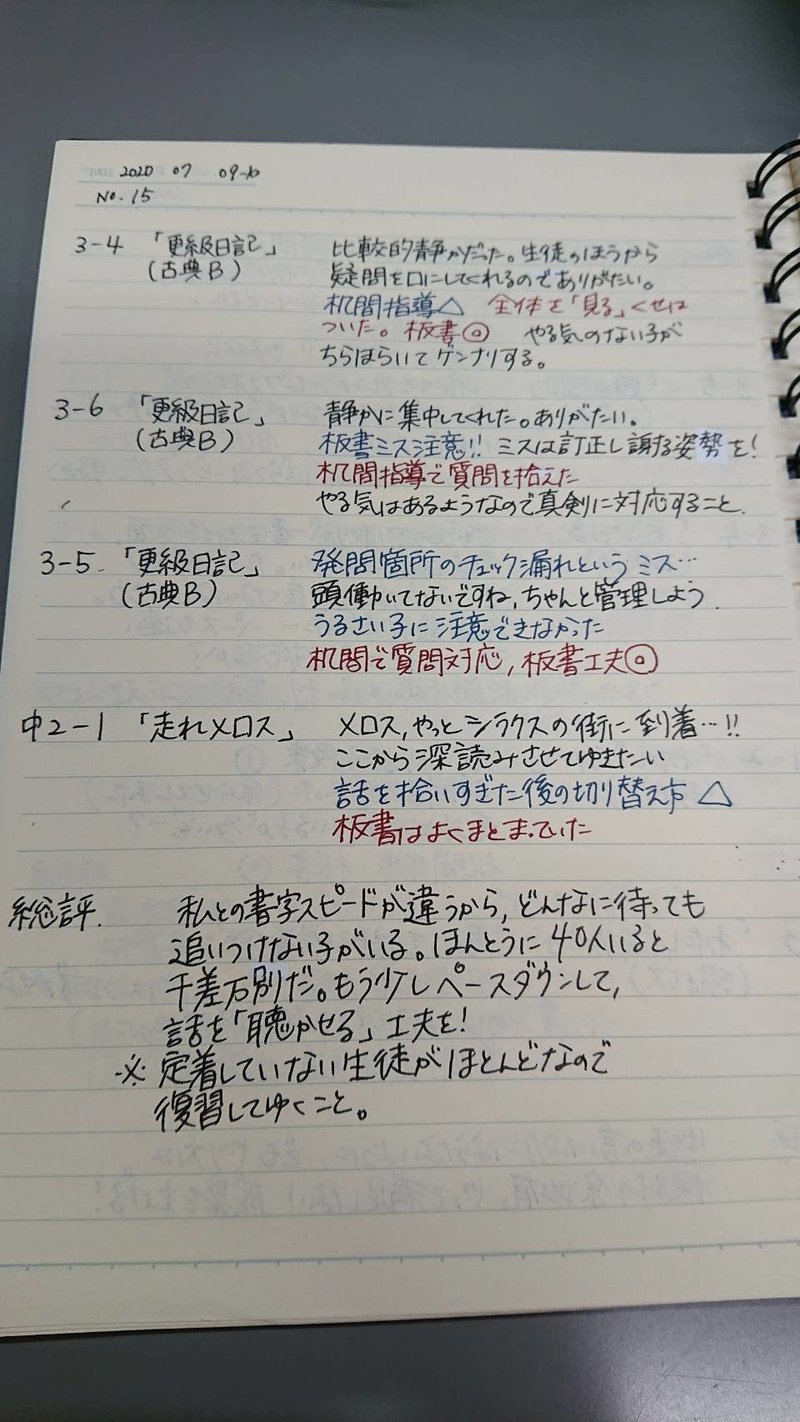 2020 07 09-10
No.15
3-4 「更級日記」 比較的静かだった。生徒のほうから
(古典B) 疑問を口にしてくれるのでありがたい。
机間指導△ 全体を「見る」くせは
ついた。板書◎ やる気のない子が
ちらほらいてゲンナリする。
3-6 「更級日記」 静かに集中してくれた。ありがたい。
(古典B) 板書ミス注意!! ミスは訂正し謝る姿勢を!
机間指導で質問を拾えた
やる気はあるようなので真剣に対応すること.
3-5. 「更級日記」 発問箇所のチェック漏れというミス…
(古典B) 頭働いてないですね, ちゃんと管理しよう.
うるさい子に注意できなかった
机間で質問対応, 板書工夫◎
中2-1 「走れメロス」 メロス, やっとシラクスの街に到着…!!
ここから深読みさせてゆきたい
話を拾いすぎた後の切り替え方 △
板書はよくまとまっていた
総評. 私との書字スピードが違うから, どんなに待っても
追いつけない子がいる。ほんとうに40人いると
千差万別だ。もう少しペースダウンして,
話を「聴かせる」工夫を!
※ 定着していない生徒がほとんどなので
復習してゆくこと。